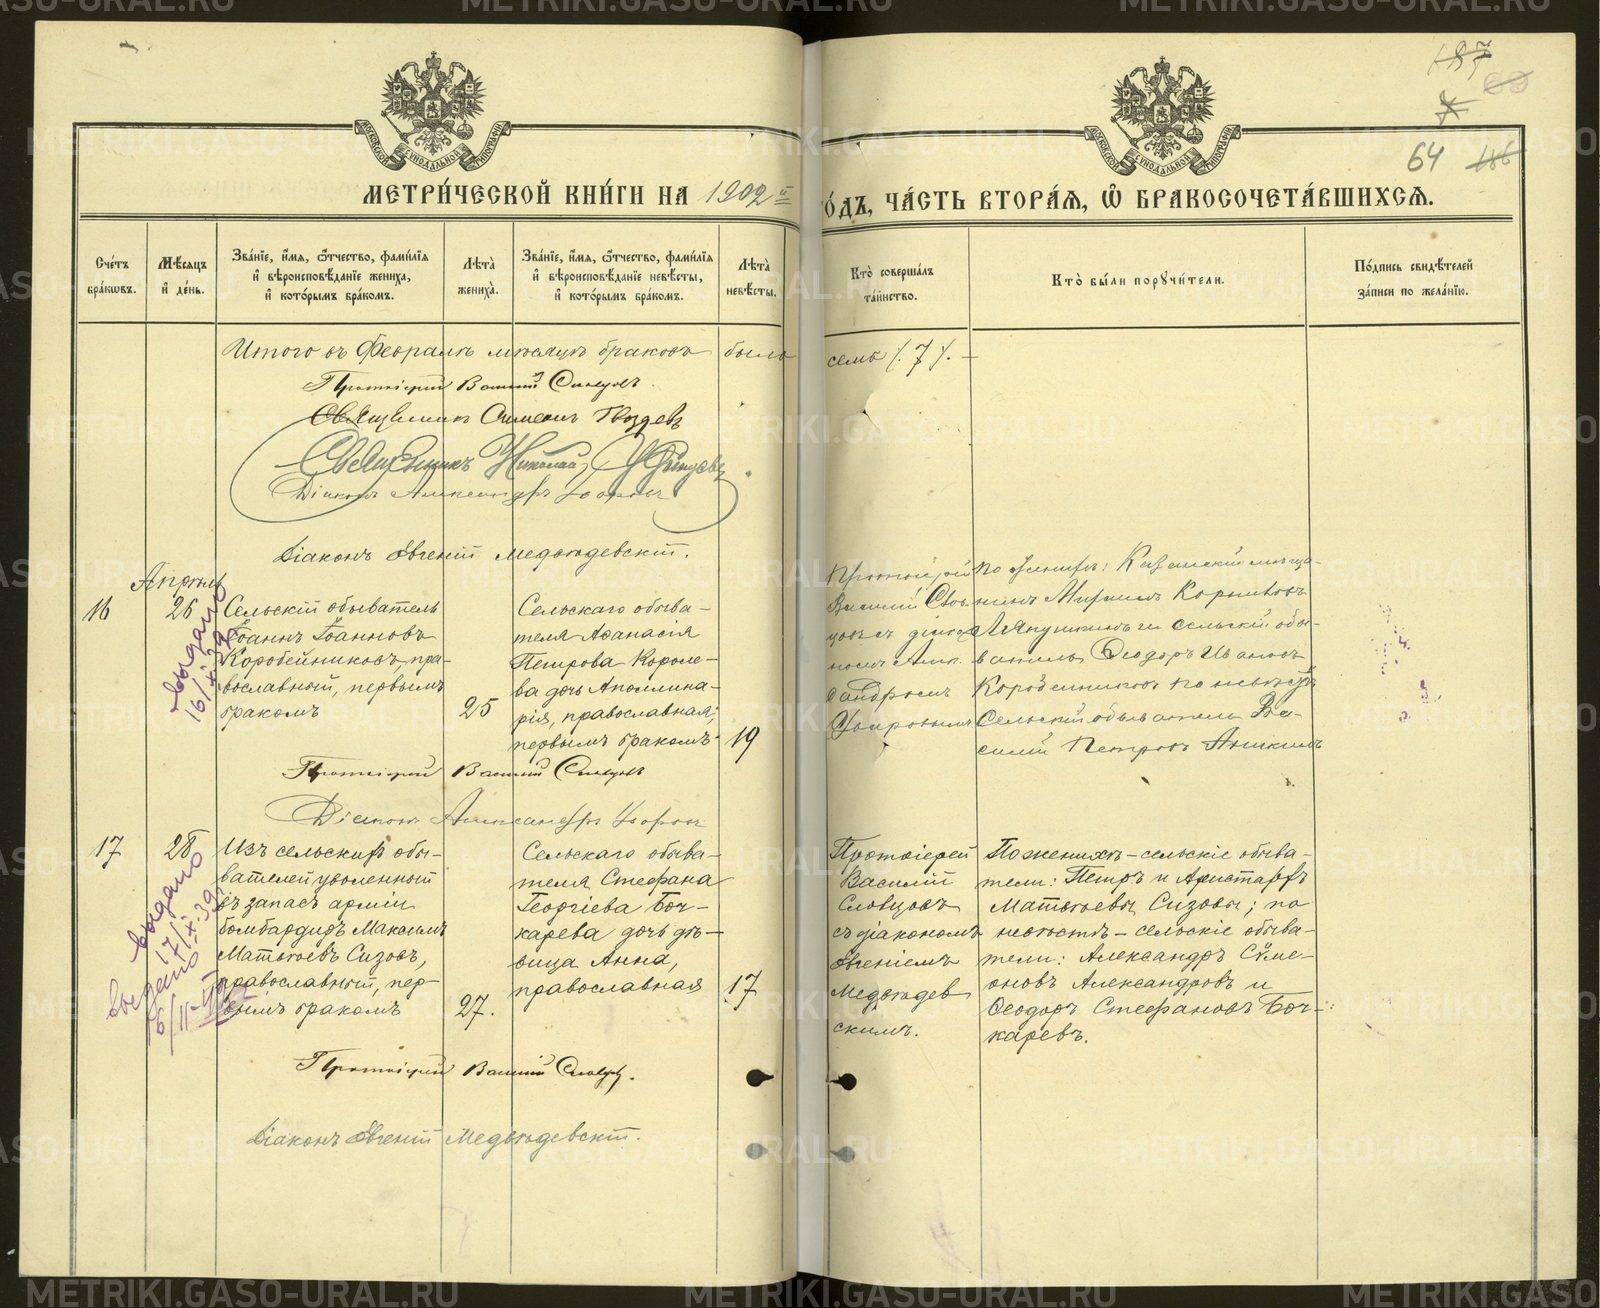 МЕТРИ́ЧЕСКОЙ КНИ́ГИ НА 1902й
ГО́ДЪ, ЧА́СТЬ ВТОРА́Я, Ѡ БРАКОСОЧЕТА́ВШИХСЯ.
64
Сче́тъ бра́кѡвъ.
Мѣ́сяцъ и де́нь.
Зва́нїе, и́мя, ѻ҆́тчество, фами́лїя
и вѣроисповѣ́данїе жениха̀,
и кото́рымъ бра́комъ.
Лѣ́та жениха̀.
Зва́нїе, и́мя, ѻ҆́тчество, фами́лїя
и вѣроисповѣ́данїе невѣ́сты,
и кото́рымъ бра́комъ.
Лѣ́та невѣ́сты.
Кто̀ соверша́лъ та́инство.
Кто̀ бы́ли порꙋчи́тели.
По́дпись свидѣ́телей за́писи по жела́нїю.
Итого въ Февралѣ мѣсяцѣ браковъ было семь /.7/. –
Протоіерей Василій Словцовъ.
Священникъ Симеонъ Гвоздевъ
Священникъ Николай
Діаконъ Александръ
Діаконъ Евгеній Медвѣдевскій.
Апрѣль
16
26
Сельскій обыватель
Іоаннъ Іоанновъ
Коробейниковъ, пра-
вославный, первымъ
бракомъ
25
Сельскаго обыва-
теля Аѳанасія
Петрова Короле-
ва дочь Аполлина-
рія, православная,
первымъ бракомъ
19
Протоіерей
Василій Слов-
цовъ съ діако-
номъ Алек-
сандромъ
По женихѣ: Казанскій мѣща-
нинъ
и сельскій обы-
ватель Ѳеодоръ Ивановъ
Коробейниковъ по невѣстѣ
Сельскій обыватель Ва-
силій Петровъ Аникинъ
выдано
16/X 39
Протоіерей Василій Словцовъ
Діаконъ Александръ
17
28
Изъ сельскихъ обы-
вателей уволенный
въ запасъ арміи
бомбардиръ Максимъ
Матѳеевъ Сизовъ,
православный, пер-
вымъ бракомъ
27.
Сельскаго обыва-
теля Стефана
Георгіева Боч-
карева дочь дѣ-
вица Анна,
православная
17
Протоіерей
Василій
Словцовъ
съ діакономъ
Евгеніемъ
Медвѣдев
скимъ.
По женихѣ – сельскіе обыва-
тели: Петръ и Аристархъ
Матѳеевы Сизовы; по
невѣстѣ – сельскіе обыва-
тели: Александръ Сѵме-
оновъ Александровъ и
Ѳеодоръ Стефановъ Боч-
каревъ.
выдано
17/X-39
выдано
Протоіерей Василій Словцовъ.
Діаконъ Евгеній Медвѣдевскій.
METRIKI.GASO-URAL.RU